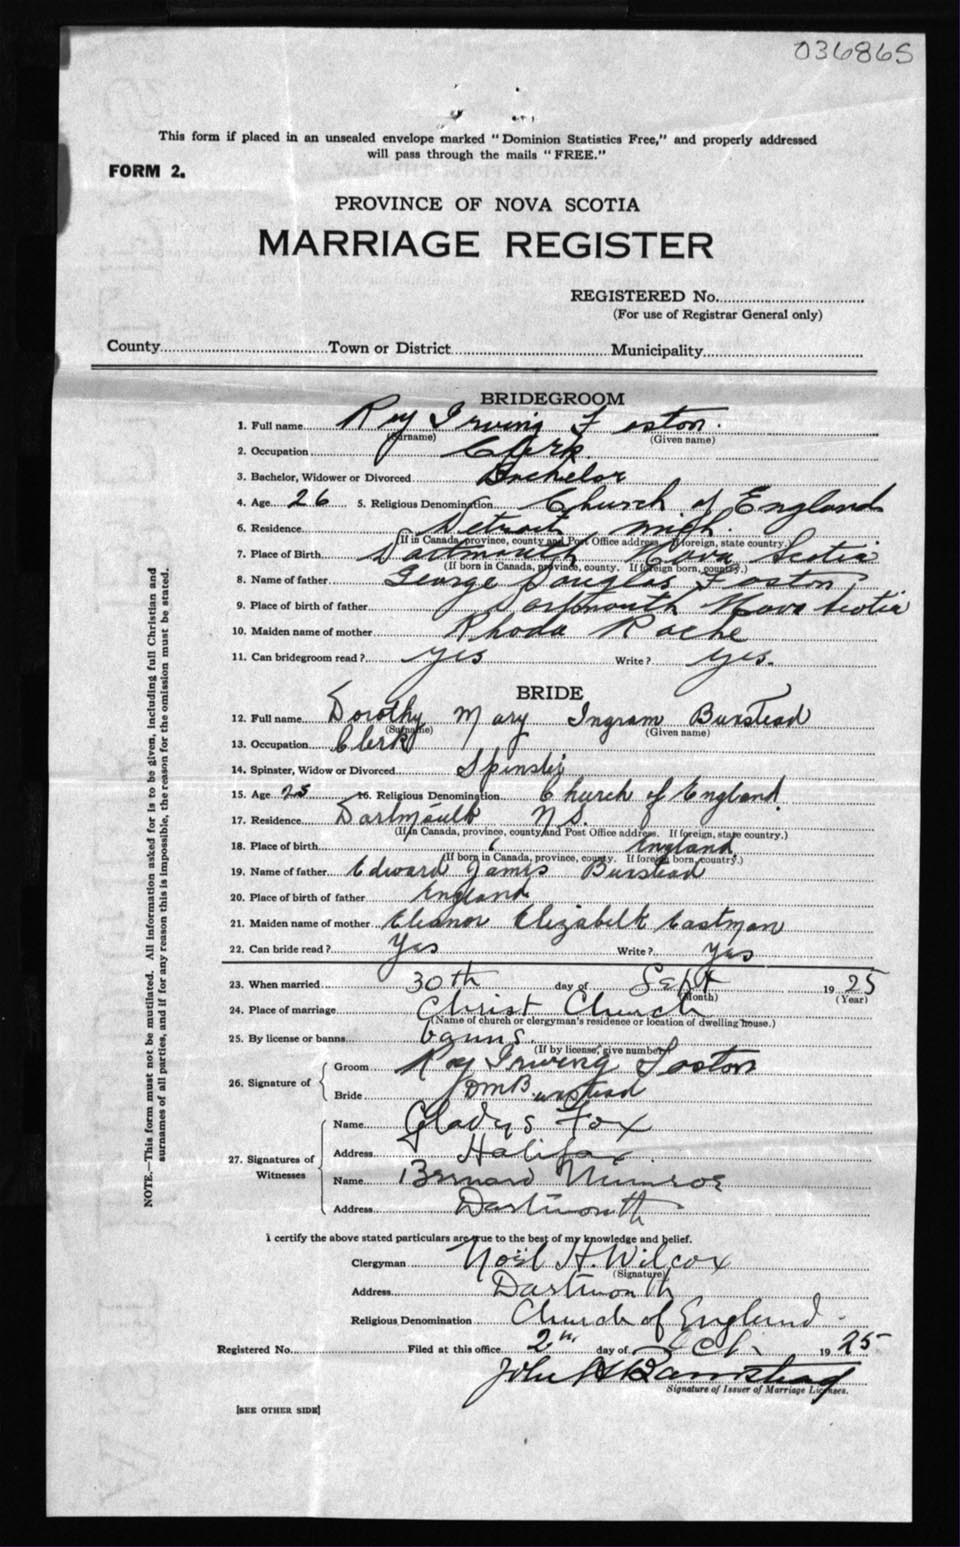 036865
This form if placed in an unsealed envelope marked "Dominion Statistics Free," and properly addressed
will pass through the mails "FREE."
FORM 2.
PROVINCE OF NOVA SCOTIA
MARRIAGE REGISTER
REGISTERED No.
(For use of Registrar General only)
County Town or District Municipality
BRIDEGROOM
1. Full name Roy Irving Foston.
(Surname) (Given name)
2. Occupation Clerk
3. Bachelor, Widower or Divorced Bachelor
4. Age 26 5. Religious Denomination Church of England
6. Residence Detroit Mich.
(If in Canada, province, county and Post Office address. If foreign, state country.)
7. Place of Birth Dartmouth Nova Scotia
(If born in Canada, province, county. If foreign born, country.)
8. Name of father George Douglas Foston
9. Place of birth of father Dartmouth Nova Scotia
10. Maiden name of mother Rhoda Roche
11. Can bridegroom read? Yes Write? Yes.
BRIDE
12. Full name Dorothy Mary Ingram Buxstead
(Surname) (Given name)
13. Occupation Clerk
14. Spinster, Widow or Divorced Spinster
15. Age 25 16. Religious Denomination Church of England.
17. Residence Dartmouth N.S.
(If in Canada, province, county and Post Office address. If foreign, state country.)
18. Place of birth England
(If born in Canada, province, county. If foreign born, country.)
19. Name of father Edward James Buxstead
20. Place of birth of father England
21. Maiden name of mother Eleanor Elizabeth Eastman
22. Can bride read? Yes Write? Yes
23. When married 30th day of Sept 1925
(Month) (Year)
24. Place of marriage Christ Church
(Name of church or clergyman's residence or location of dwelling house.)
25. By license or banns Banns
(If by license, give number)
26. Signature of Groom Roy Irving Foston
Bride DM Buxstead
27. Signatures of Witnesses Name Gladys Fox
Address Halifax.
Name Bernard Munroe
Address Dartmouth
I certify the above stated particulars are true to the best of my knowledge and belief.
Clergyman Noël H. Wilcox
(Signature)
Address Dartmouth
Religious Denomination Church of England
Registered No. Filed at this office 2nd day of Oct. 1925
John H
Signature of Issuer of Marriage Licenses.
[SEE OTHER SIDE]
NOTE.—This form must not be mutilated. All information asked for is to be given, including full Christian and
surnames of all parties, and if for any reason this is impossible, the reason for the omission must be stated.